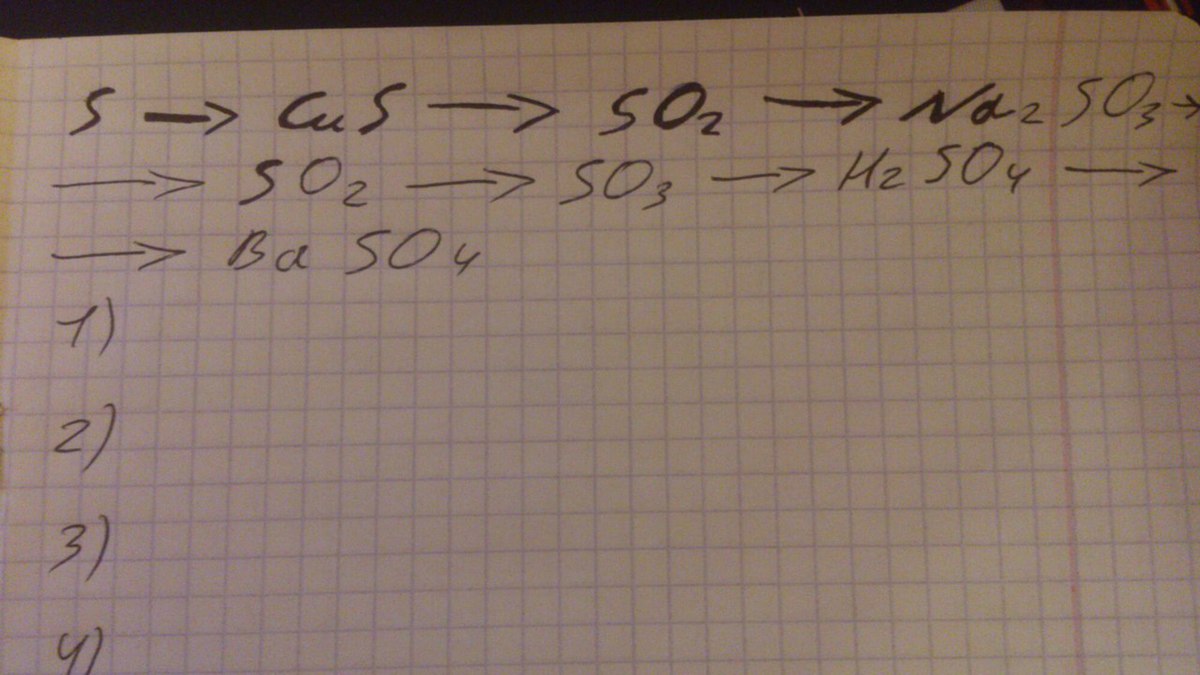 S → CuS → SO₂ → Na₂SO₃ →
→ SO₂ → SO₃ → H₂SO₄ →
→ BaSO₄
1)
2)
3)
4)